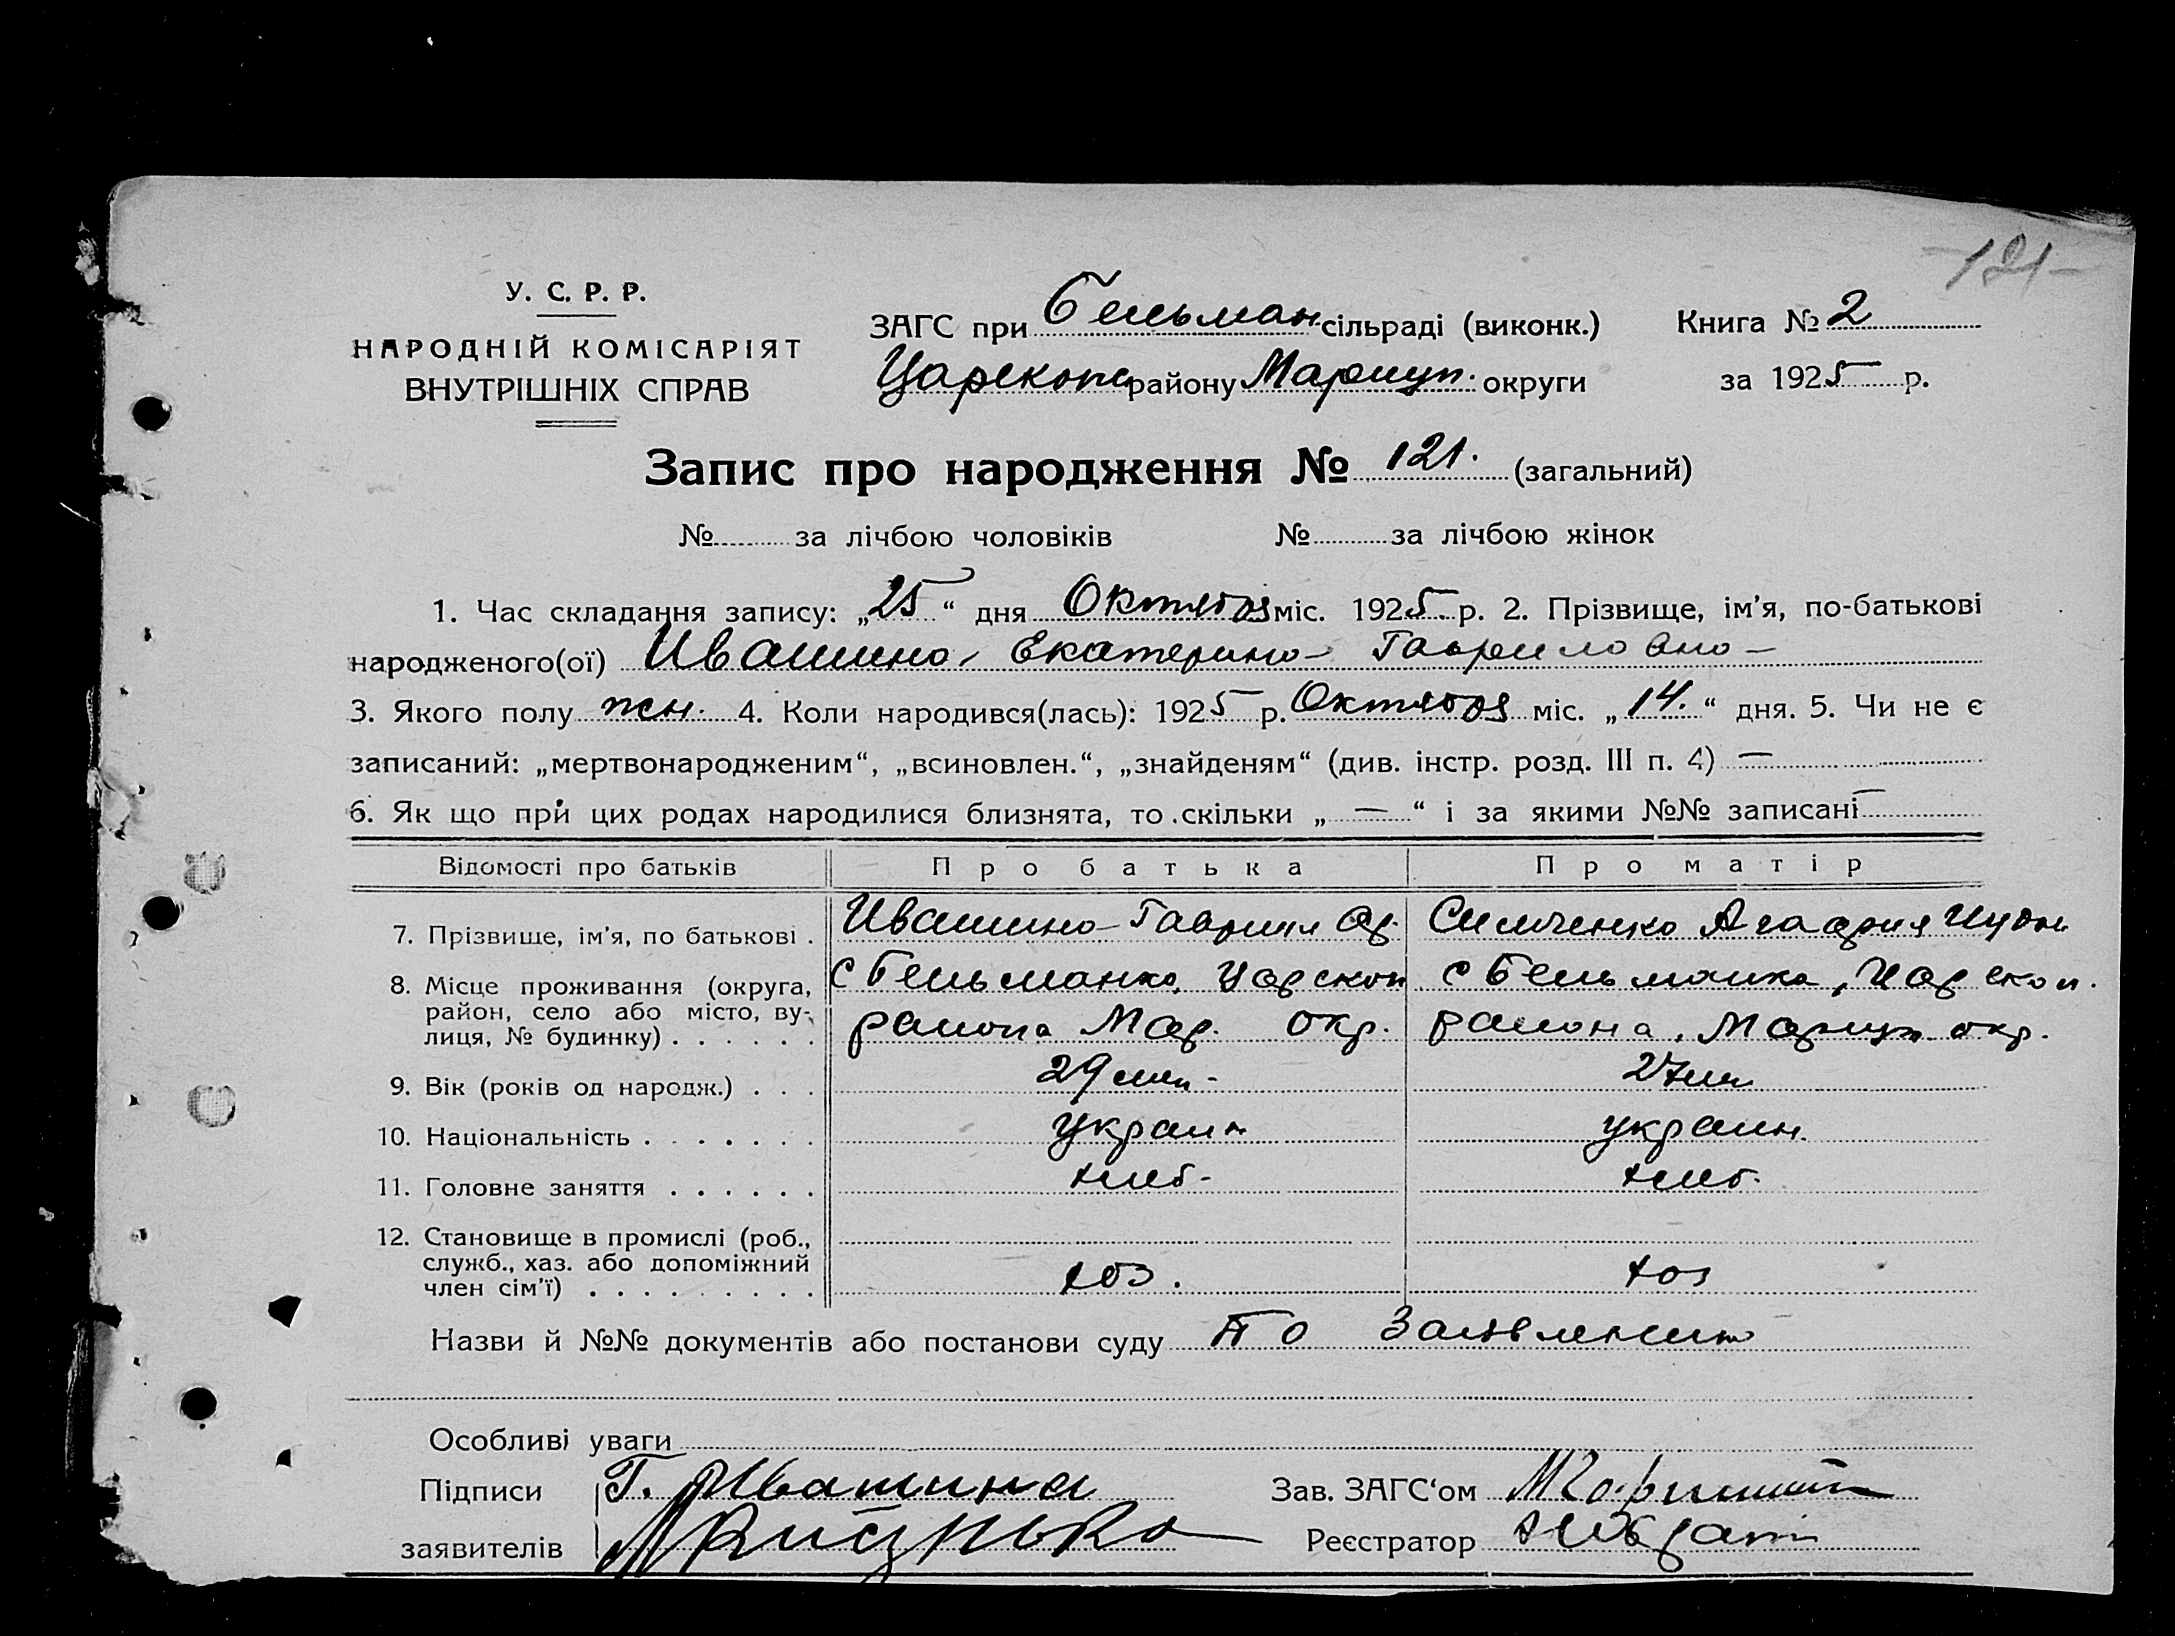 -121-
У. С. Р. Р.
НАРОДНІЙ КОМІСАРІЯТ
ВНУТРІШНІХ СПРАВ
ЗАГС при Бельман. сільраді (виконк.)
Царекон району Мариуп. округи
Книга № 2
за 1925 р.
Запис про народження № 121. (загальний)
№ за лічбою чоловіків № за лічбою жінок
1. Час складання запису: „25“ дня Октября міс. 1925 р. 2. Прізвище, ім'я, по-батькові
народженого(ої) Ивашина Екатерина Гавриловна
3. Якого полу жен. 4. Коли народився(лась): 1925 р. Октября міс. „14.“ дня. 5. Чи не є
записаний: „мертвонародженим“, „всиновлен.“, „знайденям“ (див. інстр. розд. III п. 4) —
6. Як що при цих родах народилися близнята, то скільки „—“ і за якими №№ записані —
Відомості про батьків Про батька Про матір
7. Прізвище, ім'я, по батькові . Ивашина Гаврил Симченко Агафия
8. Місце проживання (округа, район, село або місто, вулиця, № будинку) . . . . . .
с Бельманка, Царекон района Мар. окр.
с Бельманка, Царекон. района, Мариуп. окр.
9. Вік (років од народж.) . . . 29 лет 27 лет
10. Національність . . . . . . . украин украин.
11. Головне заняття . . . . . . хлеб. хлеб.
12. Становище в промислі (роб., служб., хаз. або допоміжний член сім'ї) . . . . . . . . .
хоз. хоз
Назви й №№ документів або постанови суду По заявлению
Особливі уваги
Підписи Г. Ивашина Зав. ЗАГС‘ом
заявителів Реєстратор